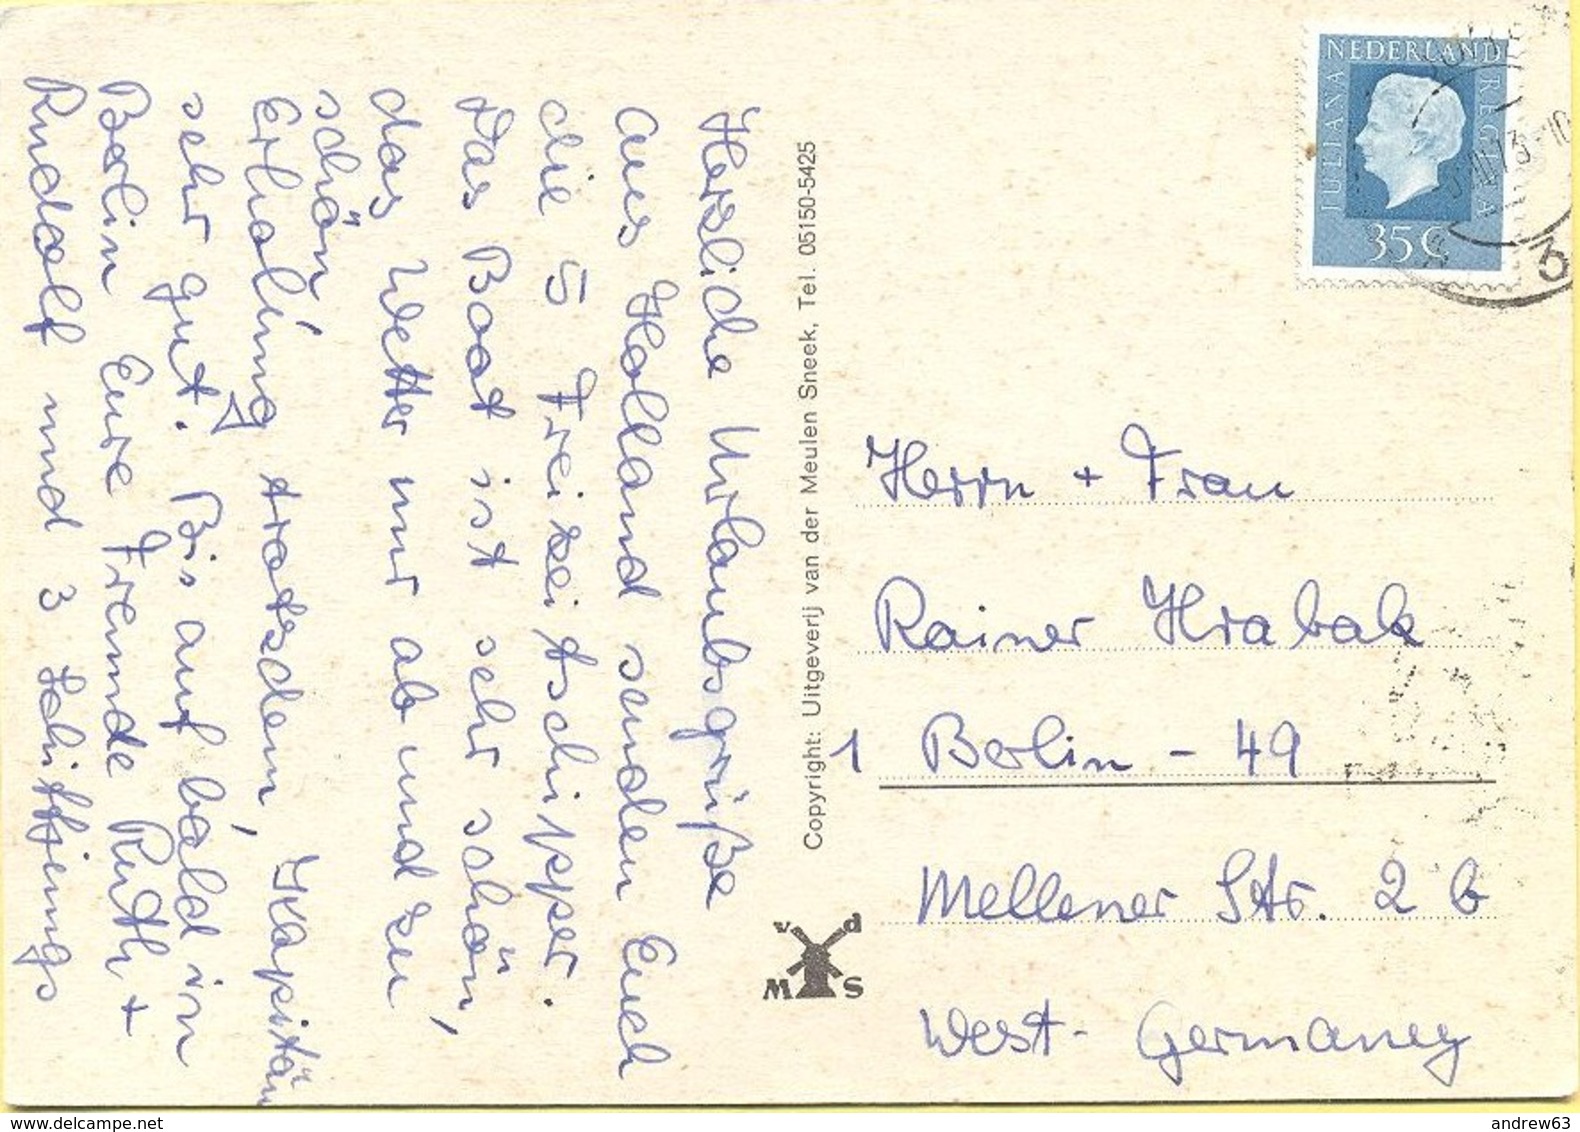 Herzliche Urlaubsgrüße
aus Holland senden Euch
die 5 Freizeitschipper.
Das Boot ist sehr schön,
das Wetter nur ab und zu
schön,
Erholung trotzdem, Kapitän
sehr gut. Bis auf bald in
Berlin Eure Freunde Ruth +
Rudolf und 3 Schiffjungs
Copyright: Uitgeverij van der Meulen Sneek, Tel. 05150-5425
v d
M S
NEDERLAND
JULIANA REGINA
35 C
3
Herrn + Frau
Rainer Hrabak
1 Berlin - 49
Mellener Str. 2 b
West-Germaney
andrew63